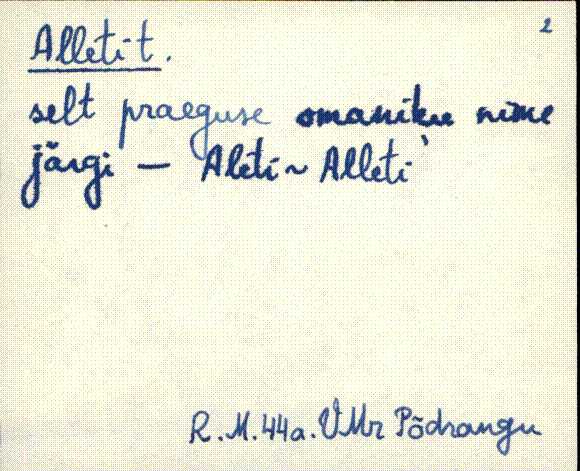 2
Alleti t.
selt praeguse omaniku nime
järgi — Aleti ~ Alleti
R. M. 44a. VMr Põdrangu